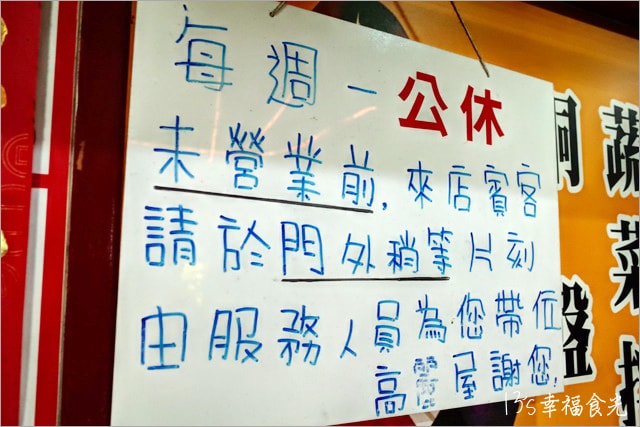 每週一公休
未營業前,來店賓客
請於門外稍等片刻
由服務人員為您帶位
高靈屋謝您.
蔬菜
盤
13's幸福食光